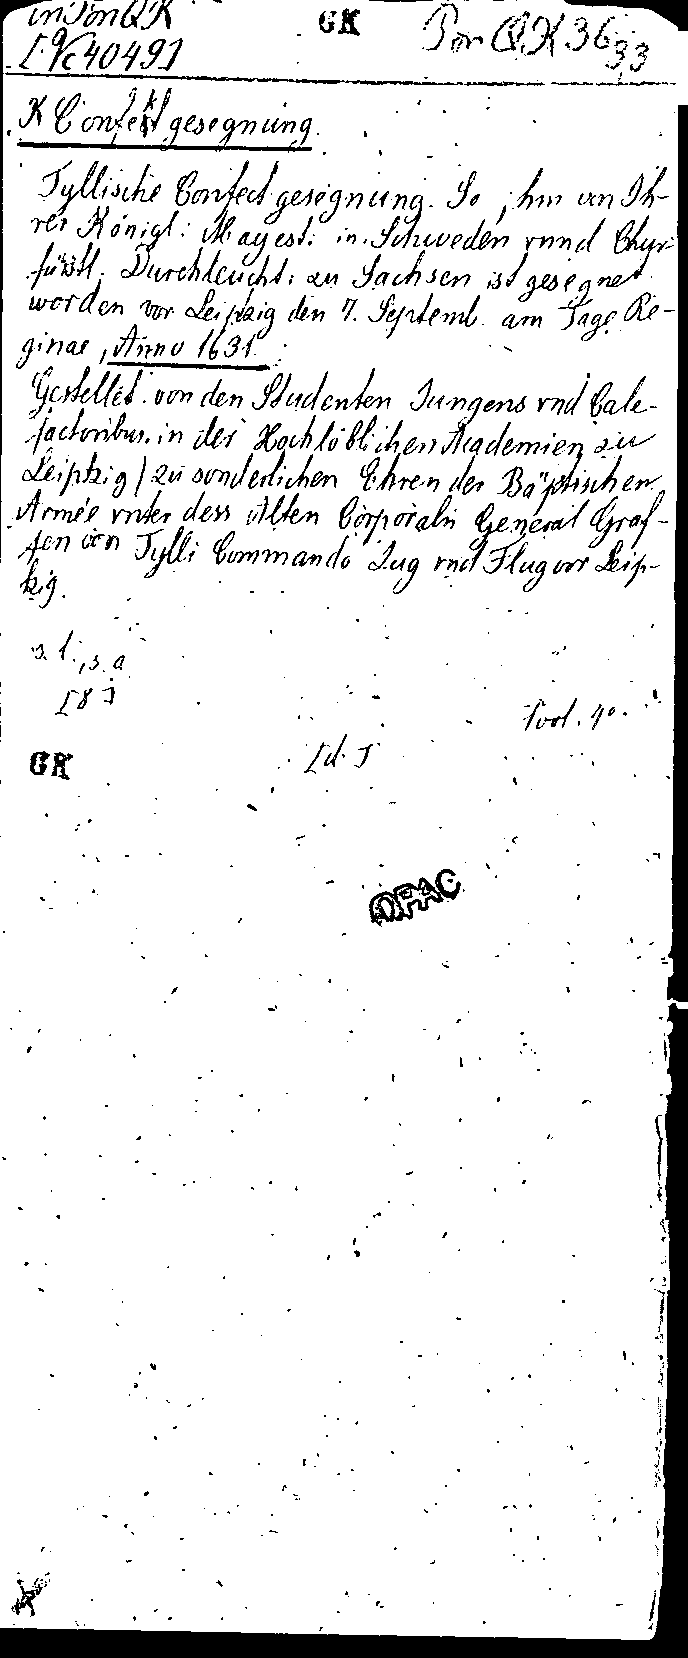 in Pon QK
GK
Pon QK 36
33
[Vc 4049]
K Confectgesegnung.
Tyllische Confectgesegnung. So, ihm von Ih-
rer Königl: Mayest: in Schweden vnnd Chur-
fürstl. Durchleucht: zu Sachsen ist gesegnet
worden vor Leipzig den 7. Septemb. am Tage Re-
ginae, Anno 1631.
Gestellet von den Studenten Jungens vnd Cale-
factoribus in der Hochlöblichen Academien zu
Leiptzig / zu sonderlichen Ehren der Bäptischen
Armée vnter dess Alten Corporaln General Graf-
fen von Tylli Commando Zug vnd Flug vor Leip-
tzig.
s. l., s. a
[8]
4°.
GK
OPAC